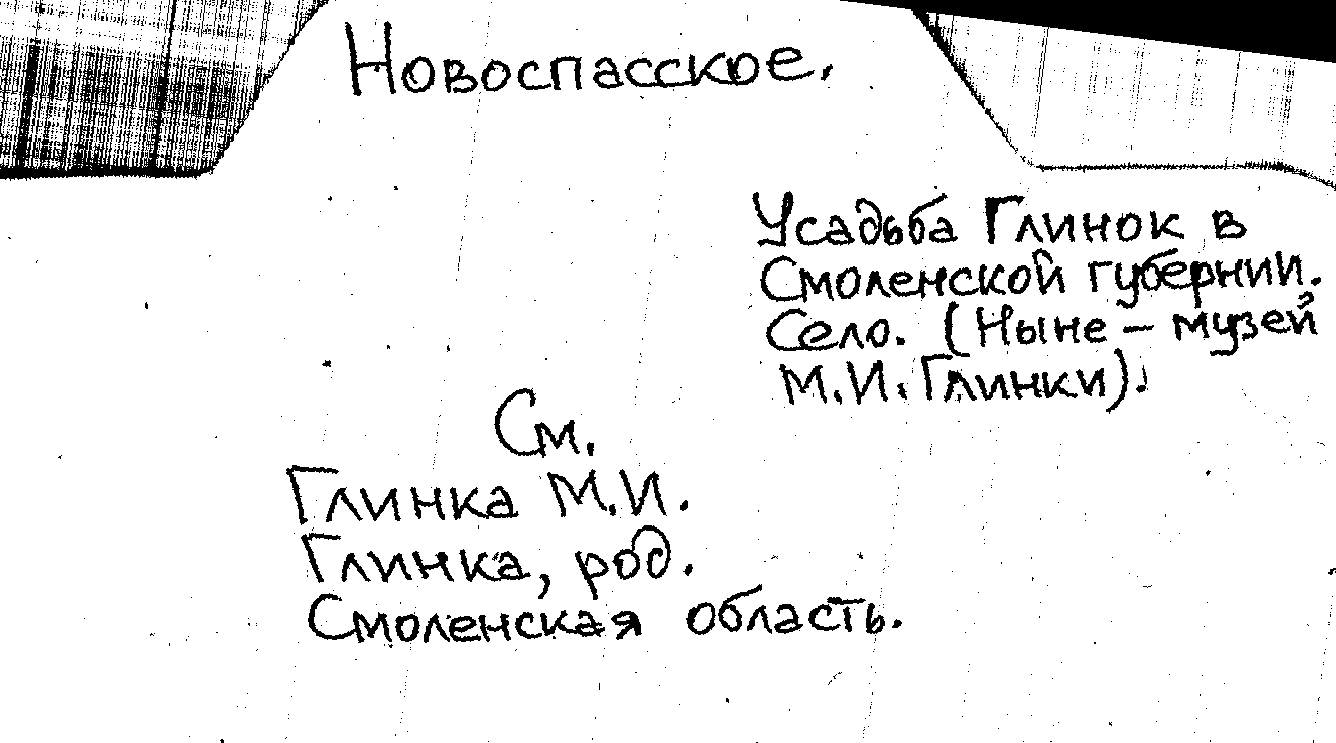 Новоспасское.
Усадьба Глинок в
Смоленской губернии.
Село. (Ныне – музей
М.И. Глинки).
См.
Глинка М.И.
Глинка, род.
Смоленская область.